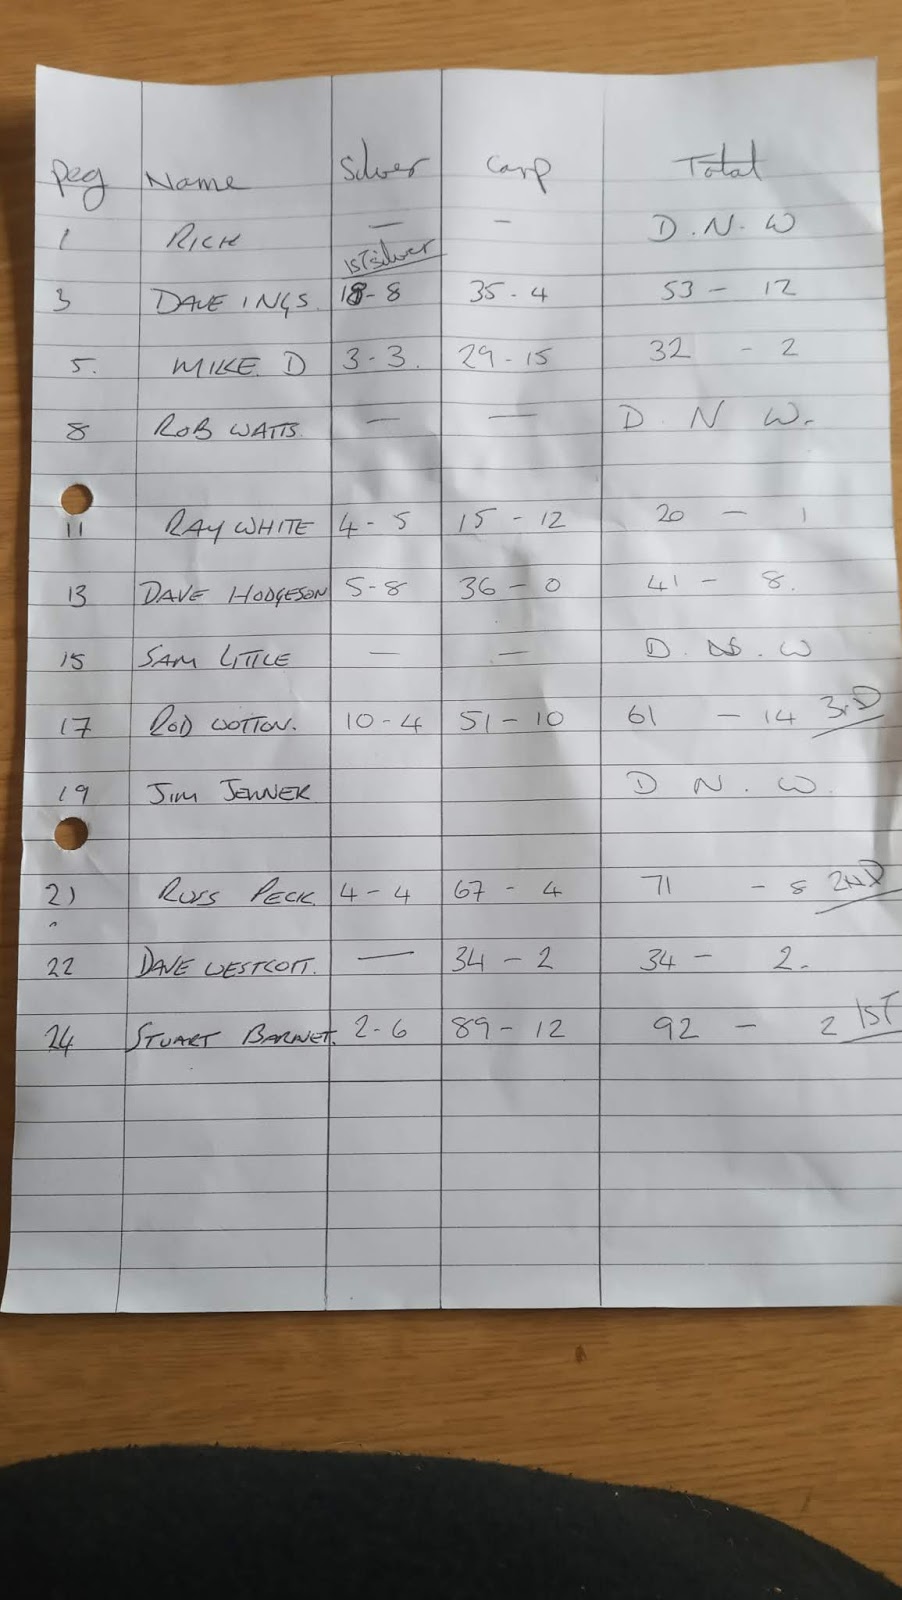 Peg Name Silver Carp Total
1 RICH — - D.N.W
1ST silver
3 DAVE INGS. 18-8 35-4 53-12
5. MIKE. D 3-3. 29-15 32-2
8 ROB WATTS. — — D. N W.
11 RAY WHITE 4-5 15-12 20-1
13 DAVE HODGESON 5-8 36-0 41-8.
15 SAM LITTLE — — D. N. W
17 ROD WOTTON. 10-4 51-10 61-14 3RD
19 JIM JENNER D N. W.
21 RUSS PECK. 4-4 67-4 71-8 2ND
22 DAVE WESTCOTT. — 34-2 34-2.
24 STUART BARNET. 2-6 89-12 92-2 1ST